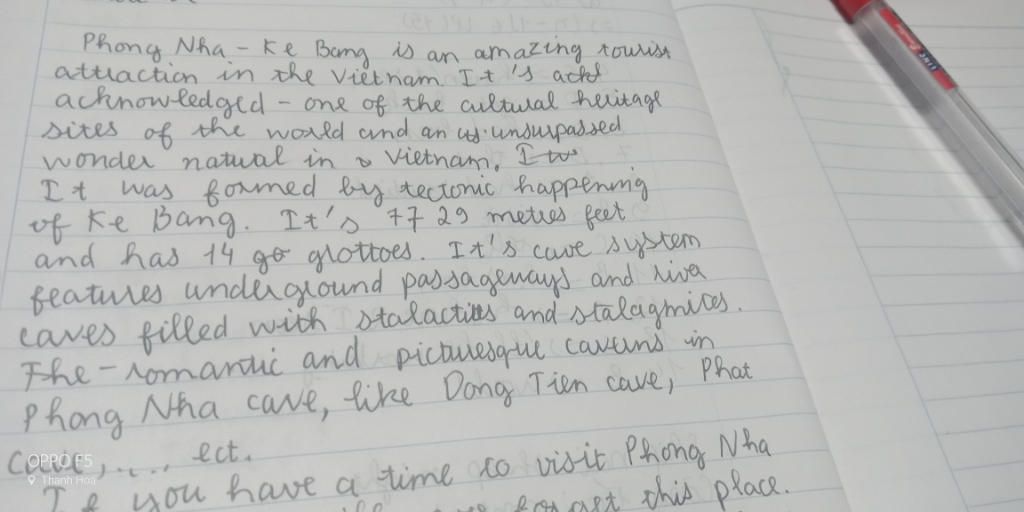 Phong Nha - Ke Bang is an amazing tourist
attraction in the Vietnam It's ackl
acknowledged - one of the cultural heritage
sites of the world and an us. unsurpassed
wonder natural in Vietnam. I w
It was formed by tectonic happening
of Ke Bang. It's 7729 metres feet
and has 14 go grottoes. It's cave system
features underground passageways and river
caves filled with stalactites and stalagmites.
The - romantic and picturesque caverns in
Phong Nha cave, like Dong Tien cave, Phat
cave, .... ect.
If you have a time to visit Phong Nha
forget this place.
OPPO F5
Thanh Hoa